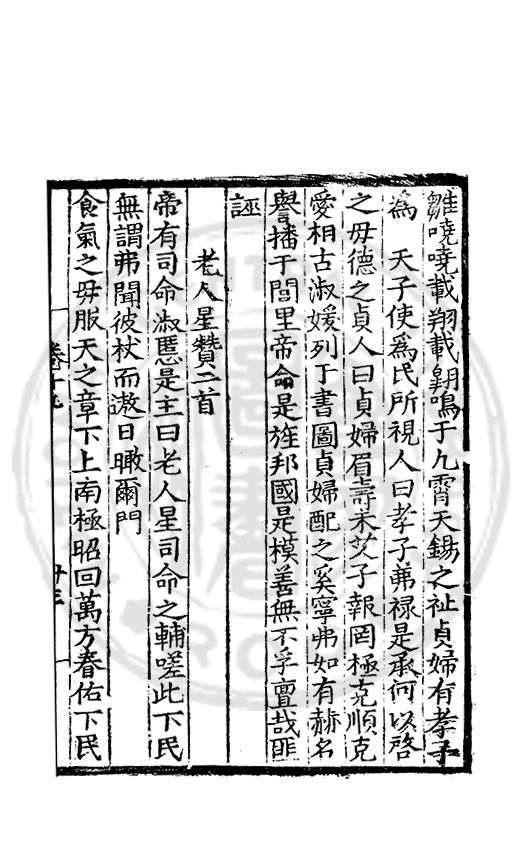 雛嘵嘵載翔載翺鳴于九霄天錫之祉貞婦有孝子
為　天子使為民所視人曰孝子茀祿是承何以啓
之毋德之貞人曰貞婦眉壽未艾子報罔極克順克
愛相古淑媛列于書圖貞婦配之奚寧弗如有赫名
譽播于閭里帝命是旌邦國是模善無不孚亶哉匪
誣
老人星贊二首
帝有司命淑慝是主曰老人星司命之輔嗟此下民
無謂弗聞彼杖而遨日瞰爾門
食氣之毋服天之章下上南極昭回萬方眷佑下民
卷十九
廿三